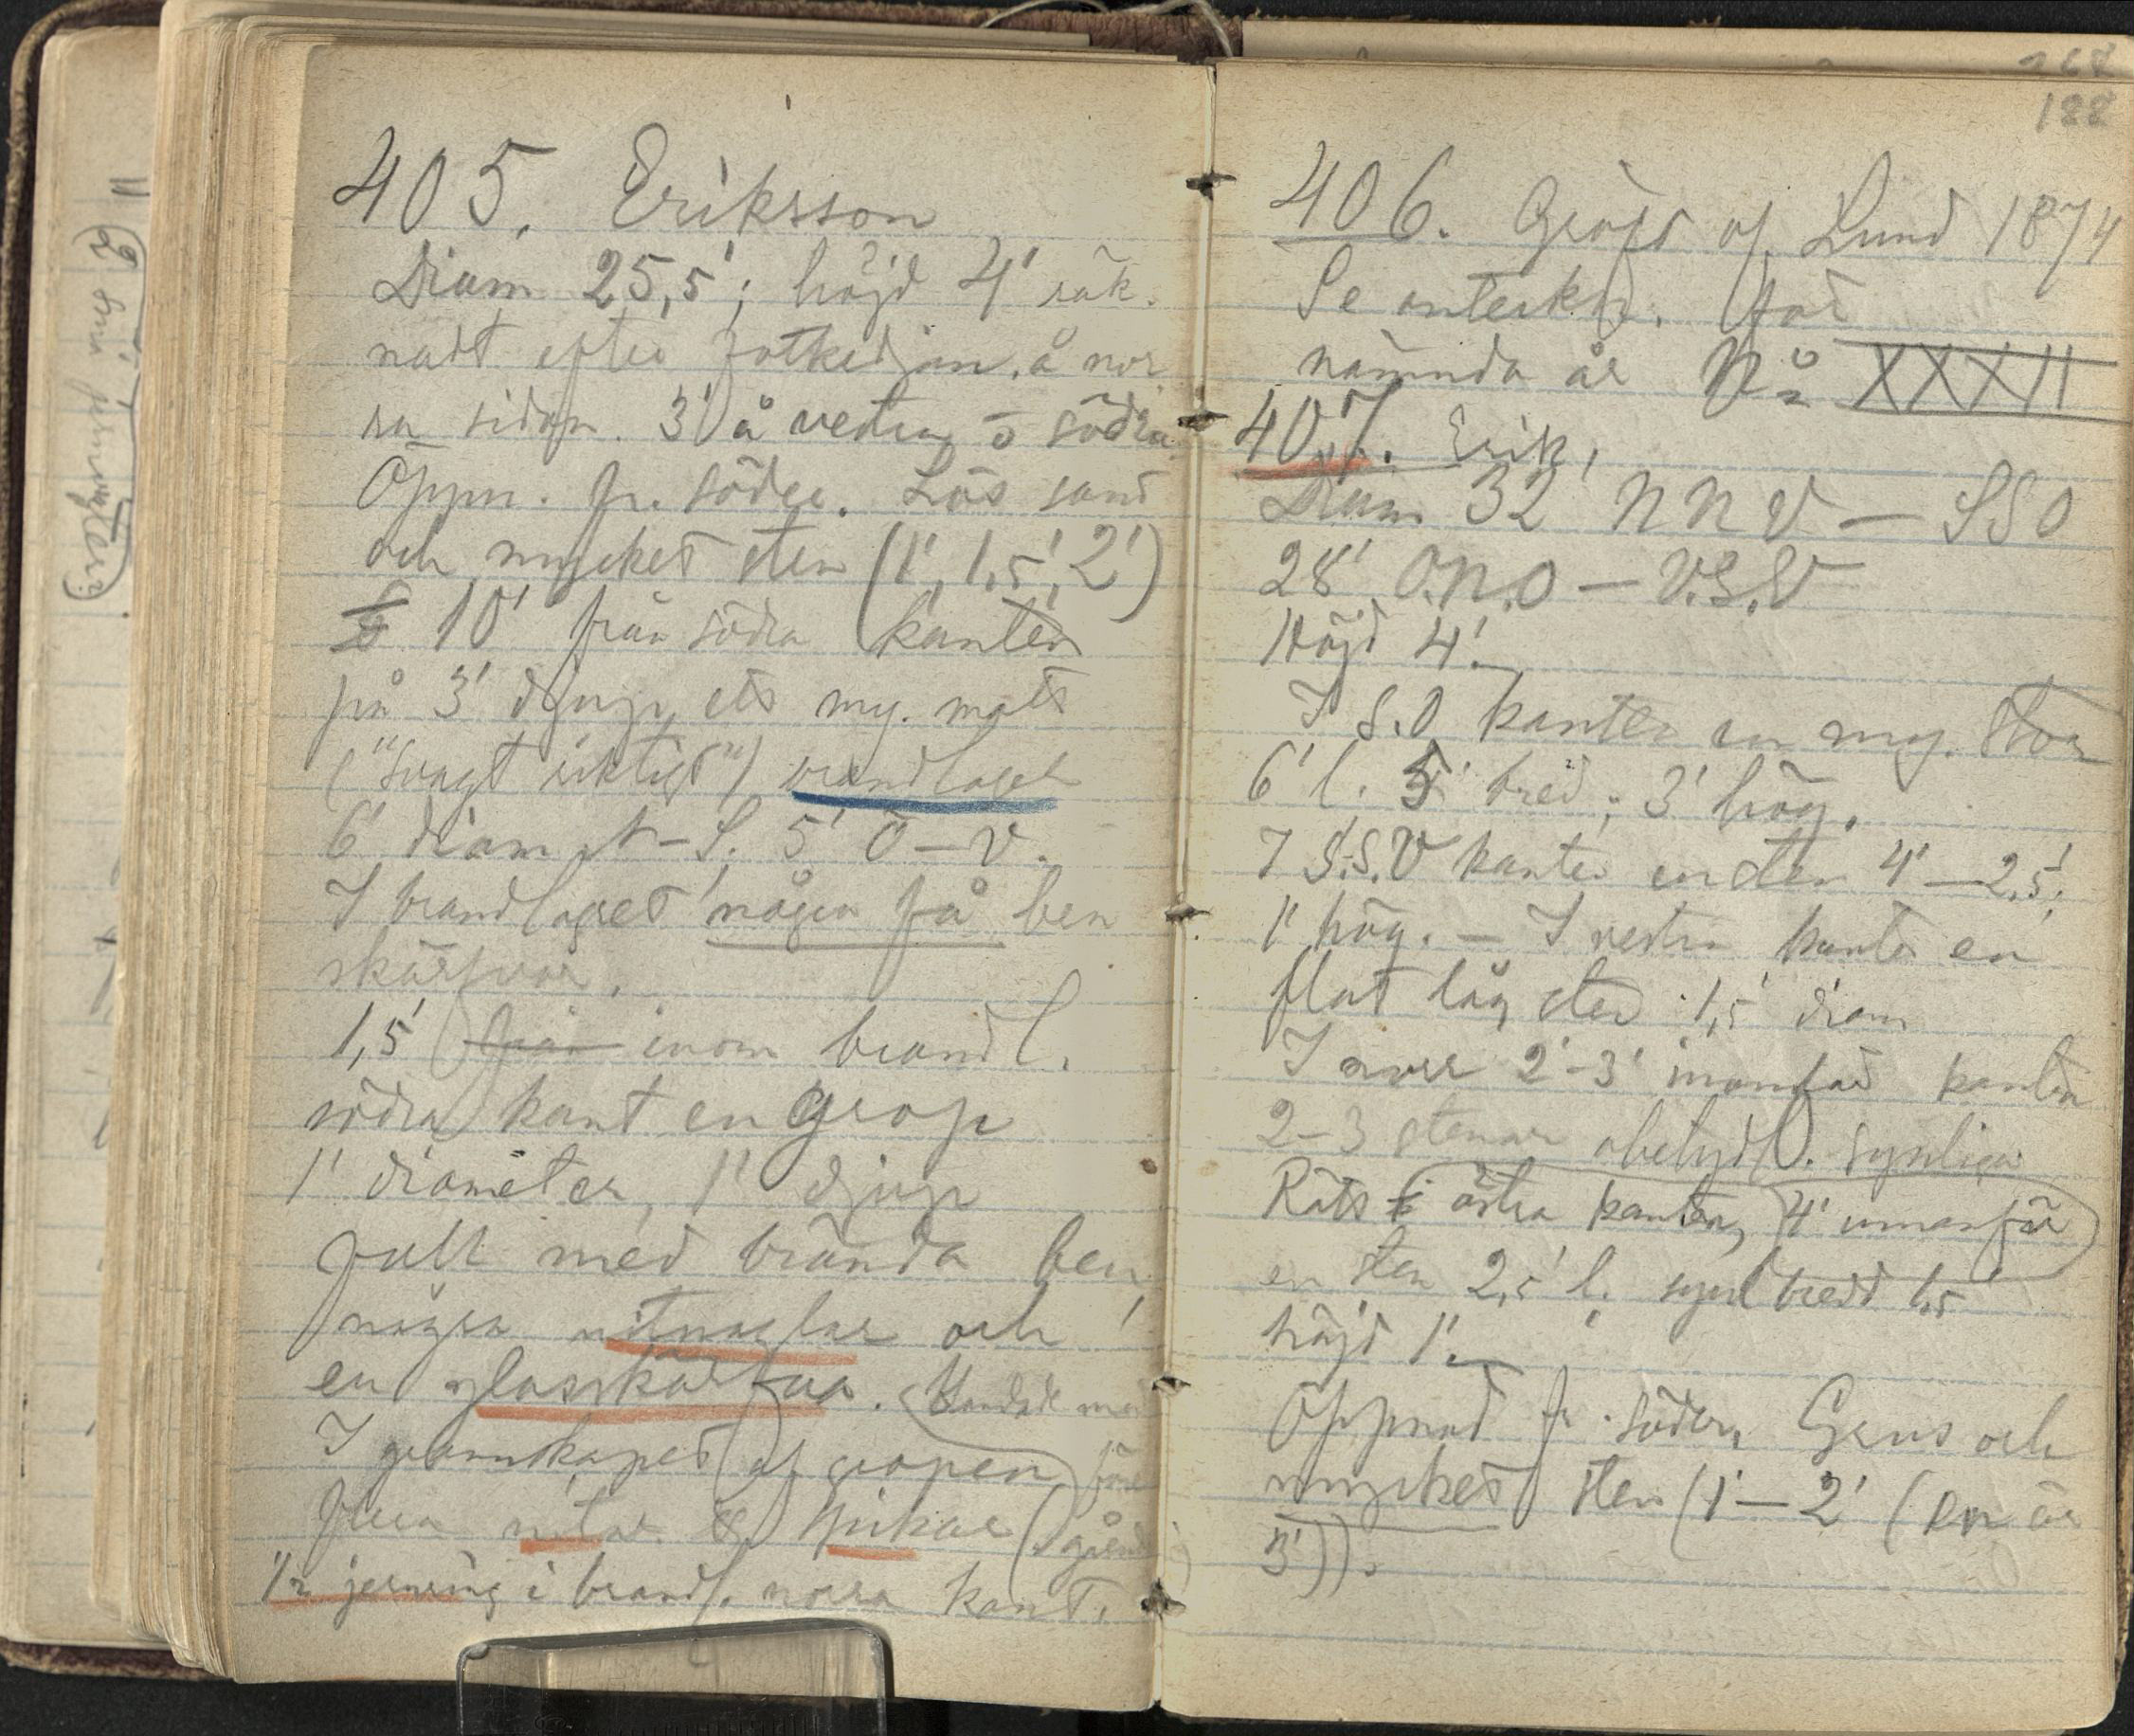 405. Eriksson
Diam 25,5'; höjd 4' räk-
nadt efter fotkedjan. å nor
ra sidan. 3' å vestra o södra
Öppn. fr. söder. Lös sand
och mycket sten (1', 1,5', 2')
10' från södra kanten
på 3' djup ett my. matt
("svagt riktigt") brandlager
6' diam N-S. 5' Ö-V.
I brandlagret några få ben
skärfvor.
1,5' från inom brandl.
södra kant en grop
1' diameter, 1' djup
full med brända ben,
några nitnaglar och
en glasskärfva.
I grannskapet af gropen
flera nitar & spikar
1/2 jernring i brandl. norra kant.
268
188
406. Gräfd af Lund 1874
Se anteckn. för
nämnda år No XXXII
407. Erik,
Diam 32' NNV — SSO
28' O.N.O — V.S.V
Höjd 4'.
I S.O kanten en my. stor
6' l. 5' bred; 3' hög.
I S.S.V kanten en sten 4' — 2,5',
1' hög. — I vestra kanten en
flat låg sten 1,5' diam
I norr 2'-3' inanför kanten
2-3 stenar obetydl. synliga
Räts i östra kanten, 4' innanför
en sten 2,5' l. synl bredd 1,5
höjd 1'.
Öppnad fr. söder, Grus och
mycket sten (1' — 2' (en är
3')).